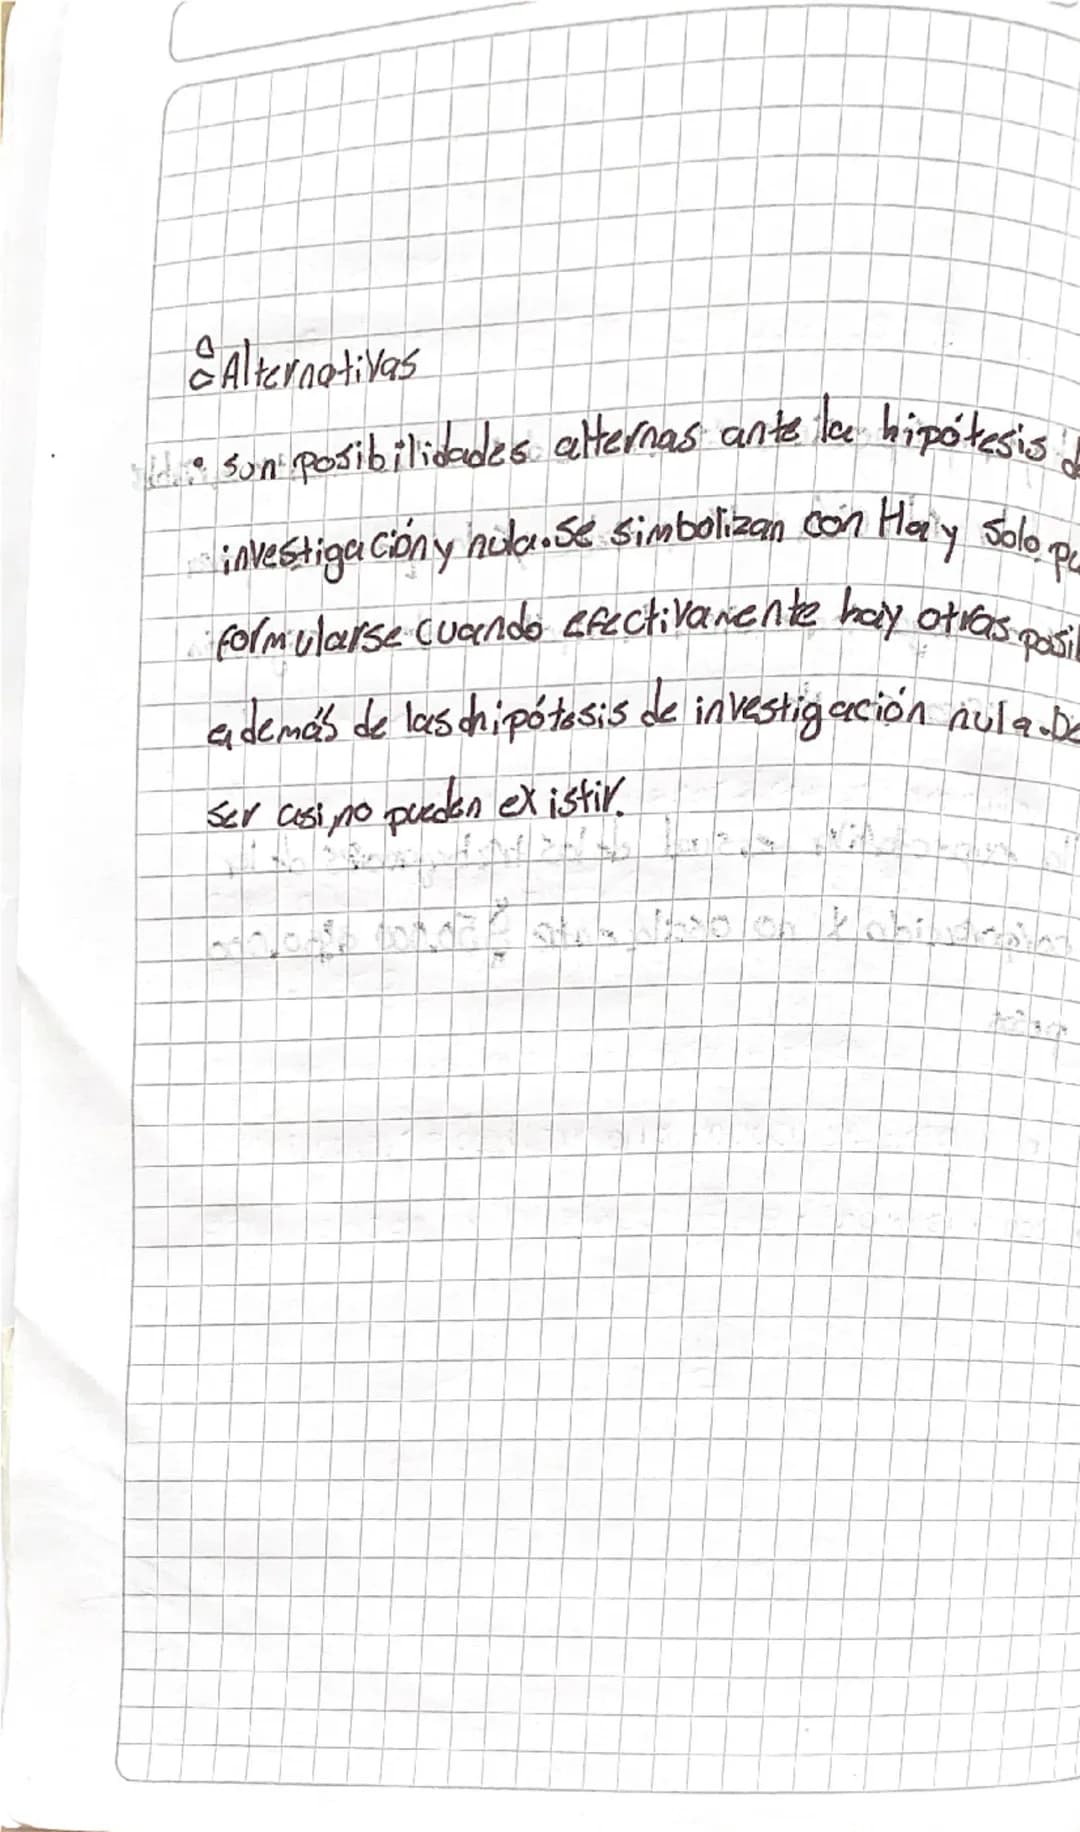 Alternativas
• son posibilidades alternas ante la hipótesis d
investigación y nula. Se simbolizan con Ha y Solo pu
formularse cuando efectivamente hay otras posib
además de las hipótesis de investigación nula. De
ser asi, no pueden existir.